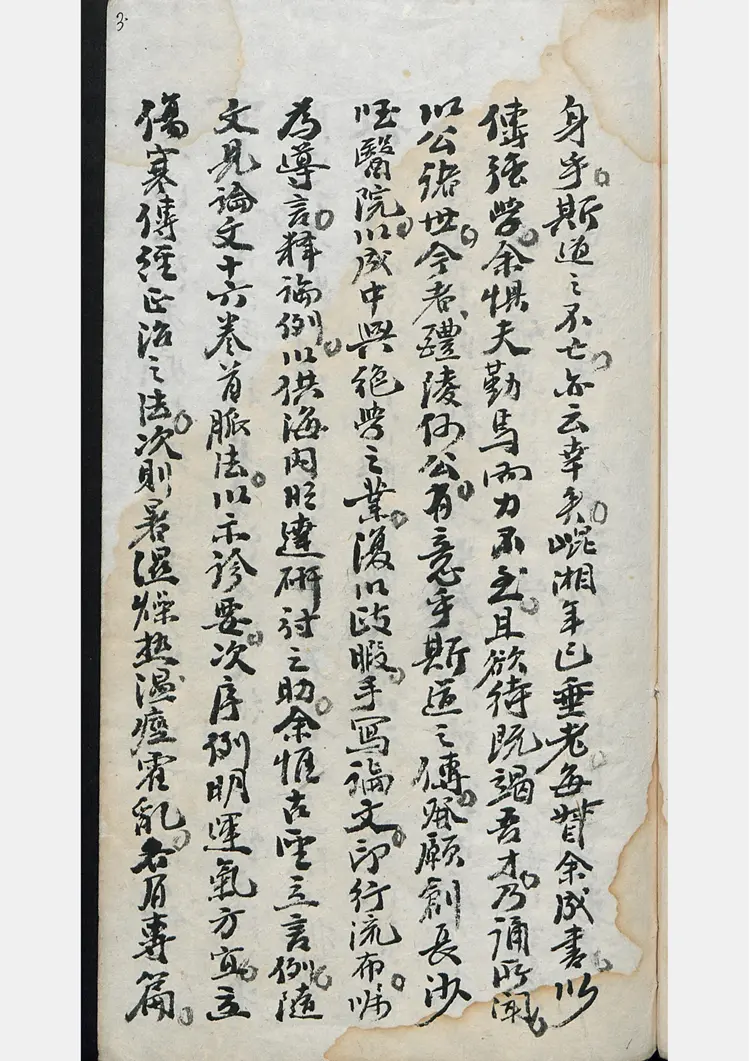 3
身乎斯道之不亡亦云幸矣崐湘年已垂老每督余成書以
傳强學余惧夫勤焉而力不至且欲待既竭吾才乃誦所聞
以公諸世今者醴陵何公有意乎斯道之傳發願創長沙
國醫院以成中興絶學之業復以政暇手寫論文印行流布囑
為導言釋論例以供海內明達研討之助余惟古聖立言例隨
文見論文十六卷首脈法以示診要次序例明運氣方宜立
傷寒傳經正治之法次則暑濕燥熱溫瘧霍亂各有專篇